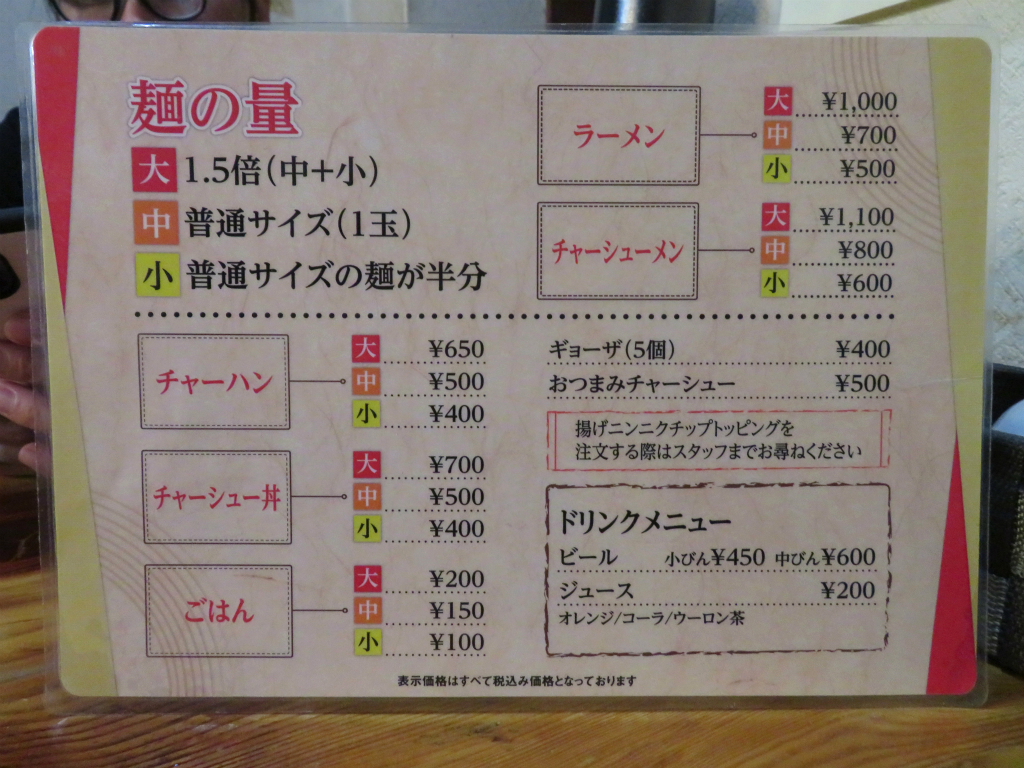 麺の量
大 1.5倍(中+小)
中 普通サイズ(1玉)
小 普通サイズの麺が半分
ラーメン
大 ¥1,000
中 ¥700
小 ¥500
チャーシューメン
大 ¥1,100
中 ¥800
小 ¥600
チャーハン
大 ¥650
中 ¥500
小 ¥400
チャーシュー丼
大 ¥700
中 ¥500
小 ¥400
ごはん
大 ¥200
中 ¥150
小 ¥100
ギョーザ(5個) ¥400
おつまみチャーシュー ¥500
揚げニンニクチップトッピングを
注文する際はスタッフまでお尋ねください
ドリンクメニュー
ビール 小びん¥450 中びん¥600
ジュース ¥200
オレンジ/コーラ/ウーロン茶
表示価格はすべて税込み価格となっております